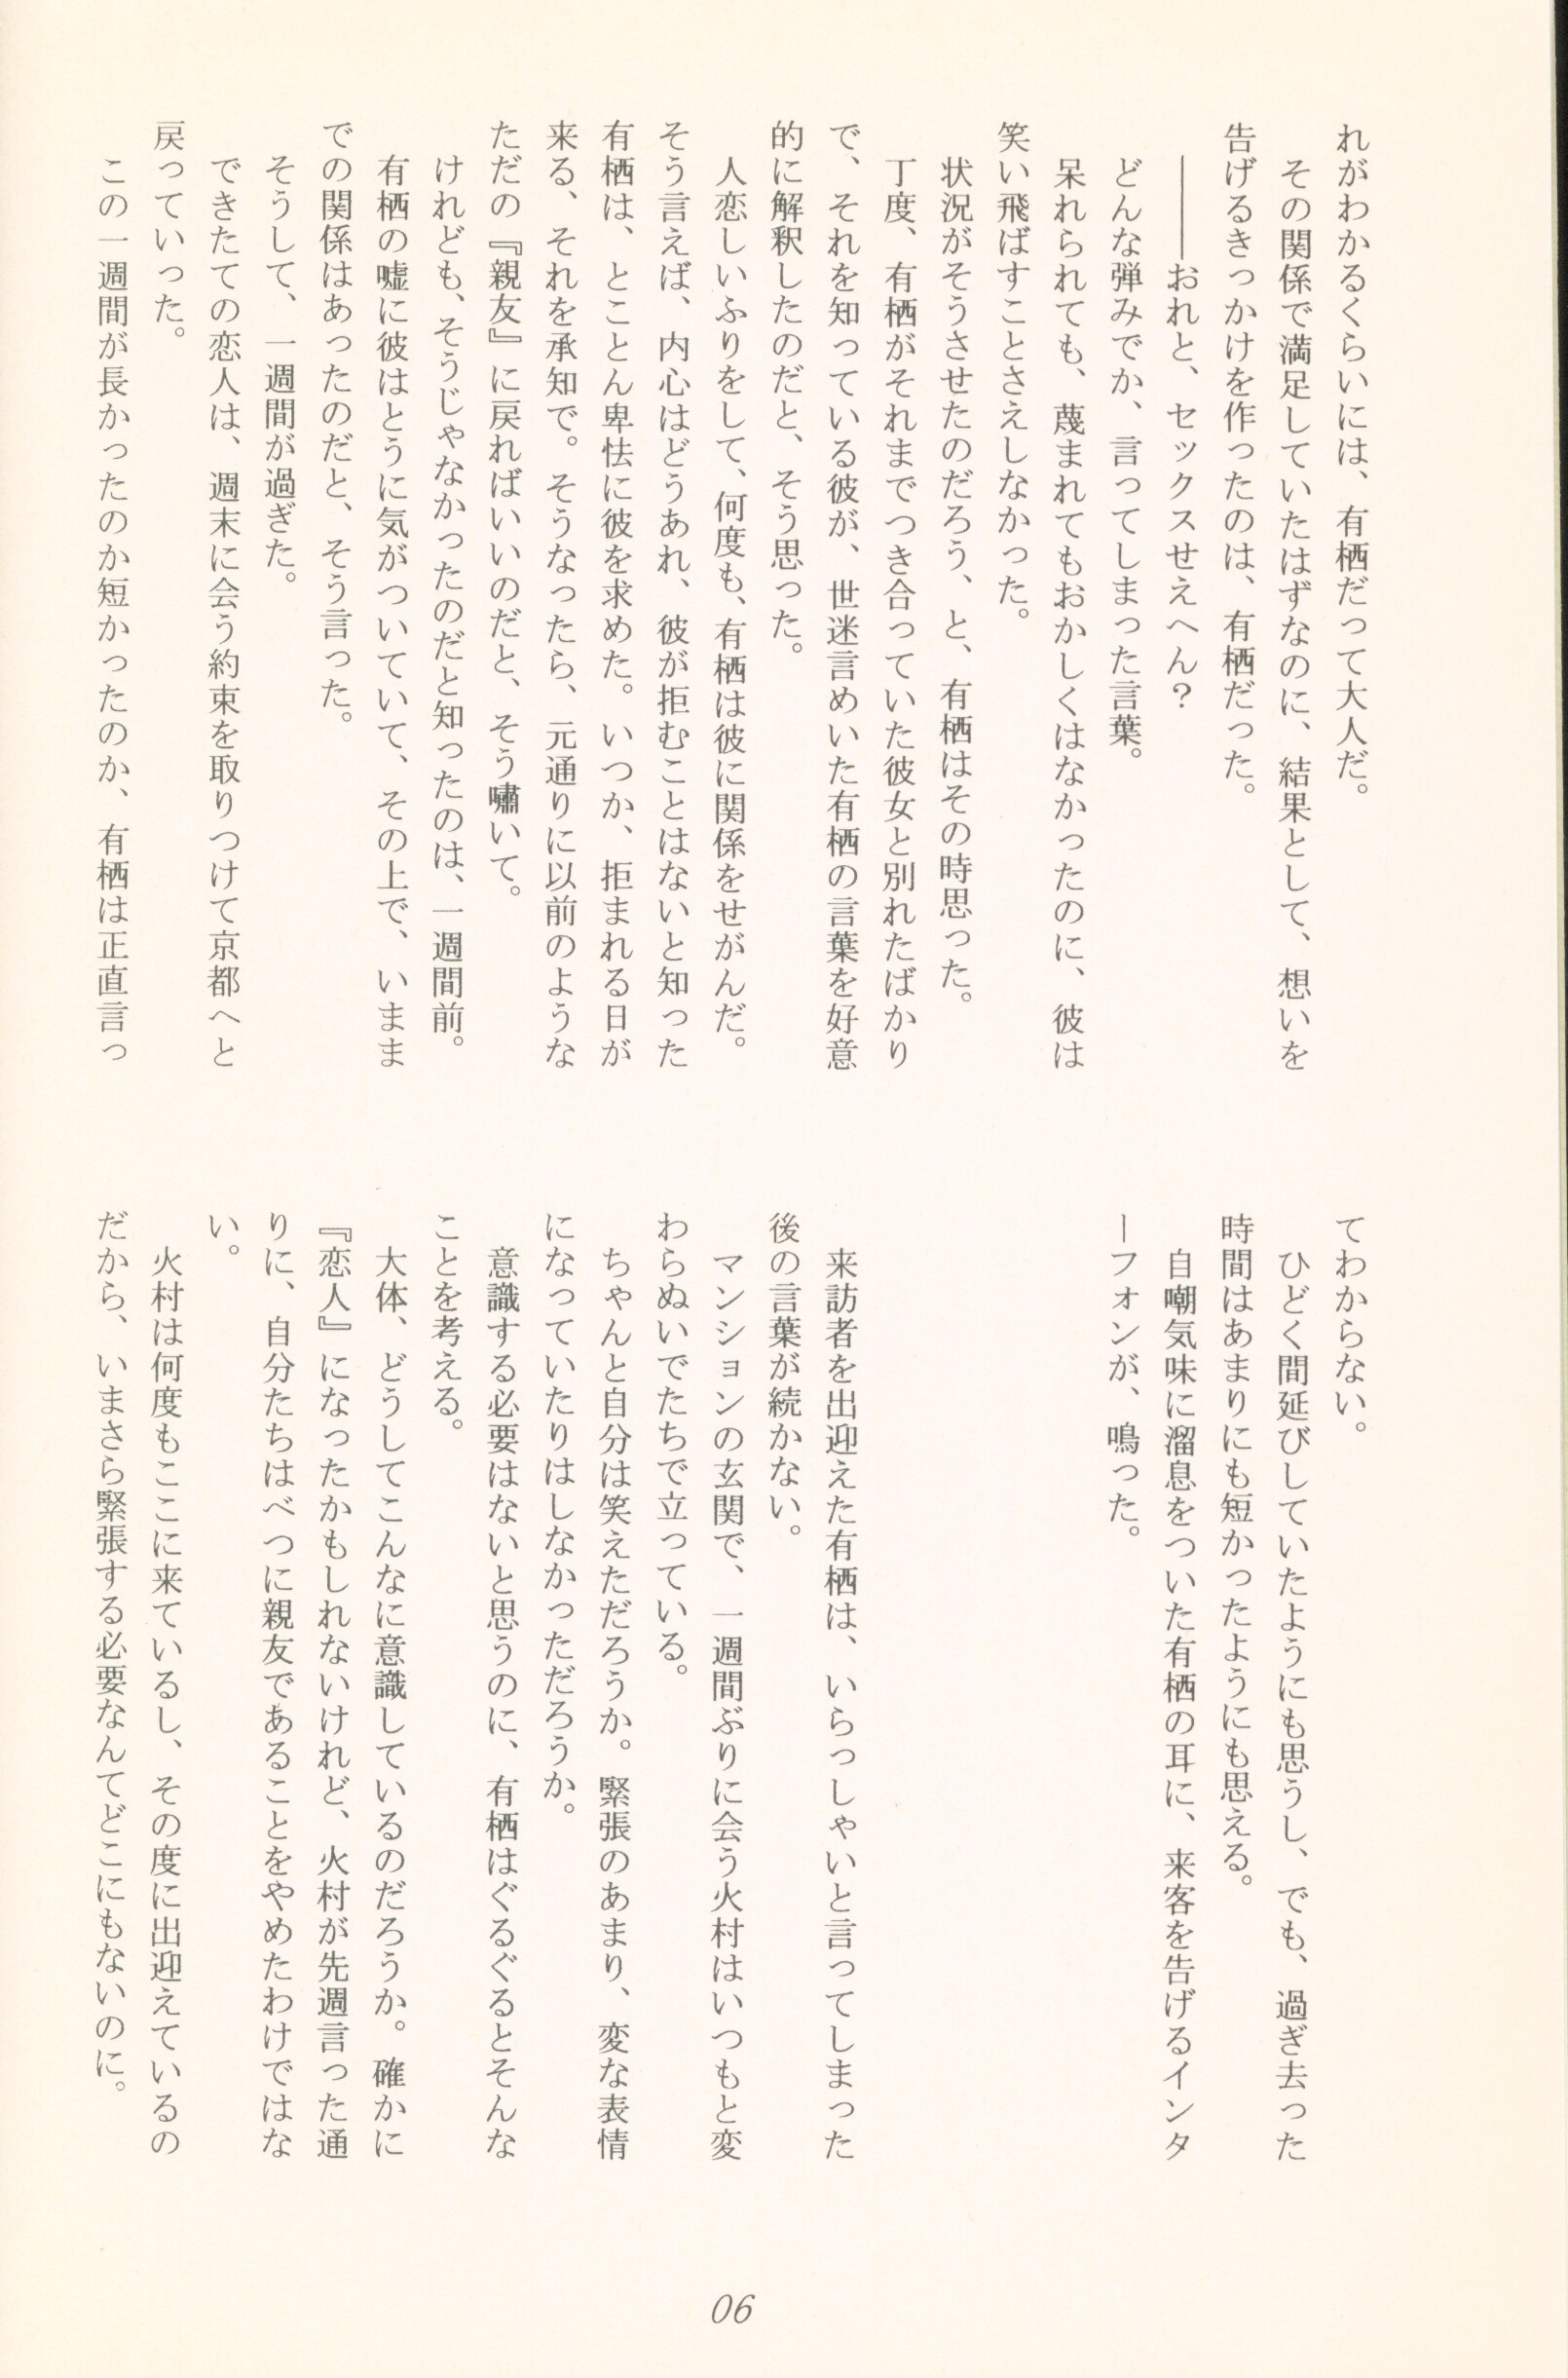 れがわかるくらいには、有栖だって大人だ。
　その関係で満足していたはずなのに、結果として、想いを
告げるきっかけを作ったのは、有栖だった。
　――おれと、セックスせえへん？
　どんな弾みでか、言ってしまった言葉。
　呆れられても、蔑まれてもおかしくはなかったのに、彼は
笑い飛ばすことさえしなかった。
　状況がそうさせたのだろう、と、有栖はその時思った。
　丁度、有栖がそれまでつき合っていた彼女と別れたばかり
で、それを知っている彼が、世迷言めいた有栖の言葉を好意
的に解釈したのだと、そう思った。
　人恋しいふりをして、何度も、有栖は彼に関係をせがんだ。
そう言えば、内心はどうあれ、彼が拒むことはないと知った
有栖は、とことん卑怯に彼を求めた。いつか、拒まれる日が
来る、それを承知で。そうなったら、元通りに以前のような
ただの『親友』に戻ればいいのだと、そう嘯いて。
　けれども、そうじゃなかったのだと知ったのは、一週間前。
　有栖の嘘に彼はとうに気がついていて、その上で、いまま
での関係はあったのだと、そう言った。
　そうして、一週間が過ぎた。
　できたての恋人は、週末に会う約束を取りつけて京都へと
戻っていった。
　この一週間が長かったのか短かったのか、有栖は正直言っ
てわからない。
　ひどく間延びしていたようにも思うし、でも、過ぎ去った
時間はあまりにも短かったようにも思える。
　自嘲気味に溜息をついた有栖の耳に、来客を告げるインタ
ーフォンが、鳴った。
　来訪者を出迎えた有栖は、いらっしゃいと言ってしまった
後の言葉が続かない。
　マンションの玄関で、一週間ぶりに会う火村はいつもと変
わらぬいでたちで立っている。
　ちゃんと自分は笑えただろうか。緊張のあまり、変な表情
になっていたりはしなかっただろうか。
　意識する必要はないと思うのに、有栖はぐるぐるとそんな
ことを考える。
　大体、どうしてこんなに意識しているのだろうか。確かに
『恋人』になったかもしれないけれど、火村が先週言った通
りに、自分たちはべつに親友であることをやめたわけではな
い。
　火村は何度もここに来ているし、その度に出迎えているの
だから、いまさら緊張する必要なんてどこにもないのに。
06